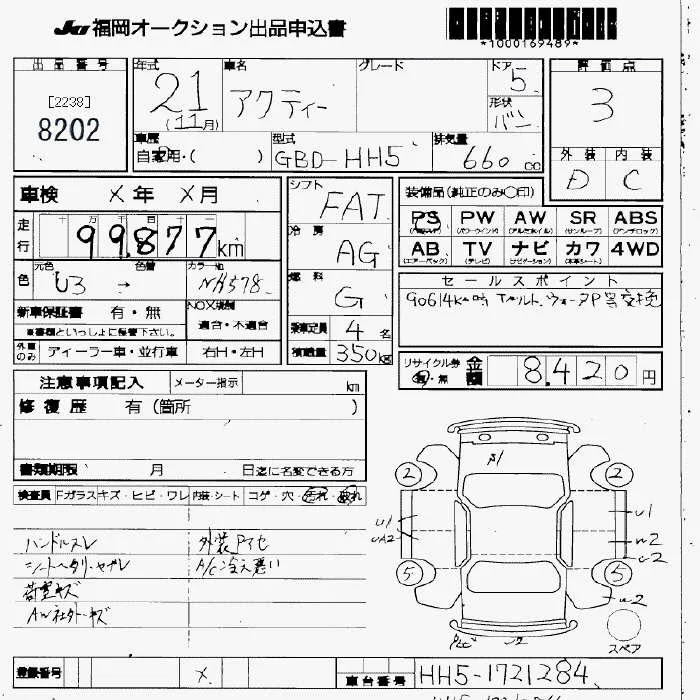 JU 福岡オークション出品申込書
*1000169489*
出品番号
[2238]
8202
年式
21
(11月)
車名
アクティー
グレード
ドアー
5
形状
バン
評価点
3
車歴
自家用・( )
型式
GBD-HH5
排気量
660 cc
外装 内装
D C
車検 X年 X月
走行
十 万 千 百 十
99,877km
元色 色替 カラーNo.
色 → NH578
新車保証書 有・無
※書類といっしょに保管下さい。
NOX規制
適合・不適合
外車のみ ディーラー車・並行車 右H・左H
シフト
FAT
冷房
AG
燃料
G
乗車定員 4名
積載量 350kg
装備品(純正のみ○印)
PS PW AW SR ABS
(パワステ) (パワーウインド) (アルミホイル) (サンルーフ) (アンチロック)
AB TV ナビ カワ 4WD
(エアーバック) (テレビ) (ナビゲーション) (本革シート)
セールスポイント
90614K時 Tベルト.ウォーターP等交換
リサイクル券
有・無
金額 8,420円
注意事項記入 メーター指示 km
修復歴 有(箇所 )
書類期限 月 日迄に名変できる方
検査員 Fガラスキズ・ヒビ・ワレ 内装・シート コゲ・穴・汚れ・破れ
ハンドルスレ 外装P アセ
シートヘタリ・ヤブレ A/C冷え悪い
荷室キズ
AW社外・キズ
A1
2 2
U1 U1
UA2 U2
C2
5 5
U2
U2
スペア
登録番号 X 車台番号 HH5-1721284